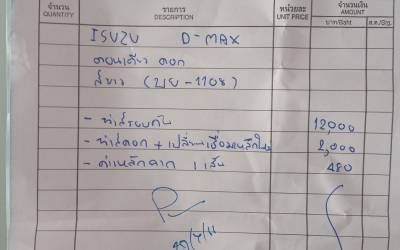 จำนวน รายการ หน่วยละ จำนวนเงิน
QUANTITY DESCRIPTION UNIT PRICE AMOUNT
บาท/Baht ส.ต./Stg.
ISUZU D-MAX
ตอนเดียว ดอก
สีขาว (บย-1108)
- ทำสีรอบคัน 12,000
- ทำสีดอก + เปลี่ยนเชื่อมเหล็กใหม่ 2,000
- ค่าเหล็กฉาก 1 เส้น 480